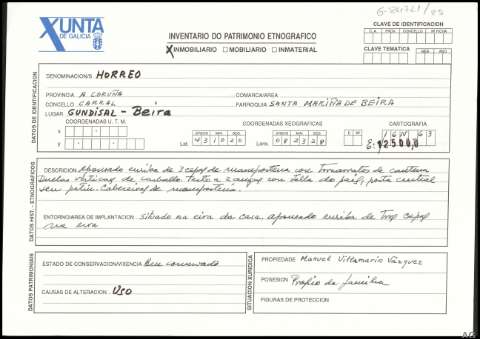 G-24721/95
XUNTA
DE GALICIA
INVENTARIO DO PATRIMONIO ETNOGRAFICO
X INMOBILIARIO □ MOBILIARIO □ INMATERIAL
CLAVE DE IDENTIFICACION
C.A. PROV. CONCELLO Nº FICHA
CLAVE TEMATICA
MES ANO
DATOS DE IDENTIFICACION
DENOMINACION/S HORREO
PROVINCIA A CORUÑA
COMARCA/AREA
CONCELLO CARRAL
PARROQUIA SANTA MARIÑA DE BEIRA
LUGAR GUNDISAL - Beira
COORDENADAS U.T.M.
COORDENADAS XEOGRAFICAS
CARTOGRAFIA
X
Y
Lat. 431020
Lonx. 082328
E: 1:2500,0
DATOS HIST. - ETNOGRAFICOS
DESCRICION Apoyado enriba de 3 cepas de mampostería con tornarratos de cantería
Duelas verticais de carballo. Teito a 2 augas con tella do país, porta central
sen patín. Cabeceiras de mampostería.
ENTORNO/AREA DE IMPLANTACION Situado na eira da casa apoyando enriba de tres cepas
na eira
DATOS PATRIMONIAIS
ESTADO DE CONSERVACION/VIXENCIA Ben conservado
CAUSAS DE ALTERACION Uso
SITUACION XURIDICA
PROPIEDADE Manuel Villamarin Vázquez
POSESION Propia da familia
FIGURAS DE PROTECCION